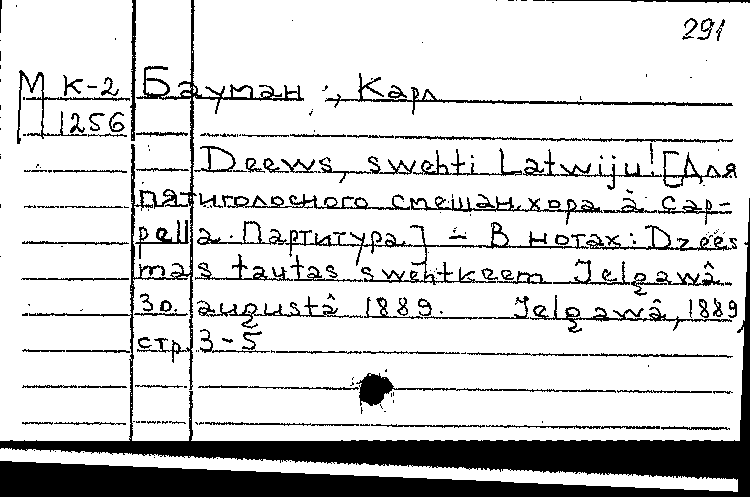 291
М К-2 Бауман ., Карл
1256
Deews, swehti Latwiju! [Для
пятиголосного смешан. хора a cap-
pella. Партитура.] - В нотах: Dzees-
mas tautas swehtkeem Jelgawâ
30. augustâ 1889. Jelgawâ, 1889,
стр. 3-5